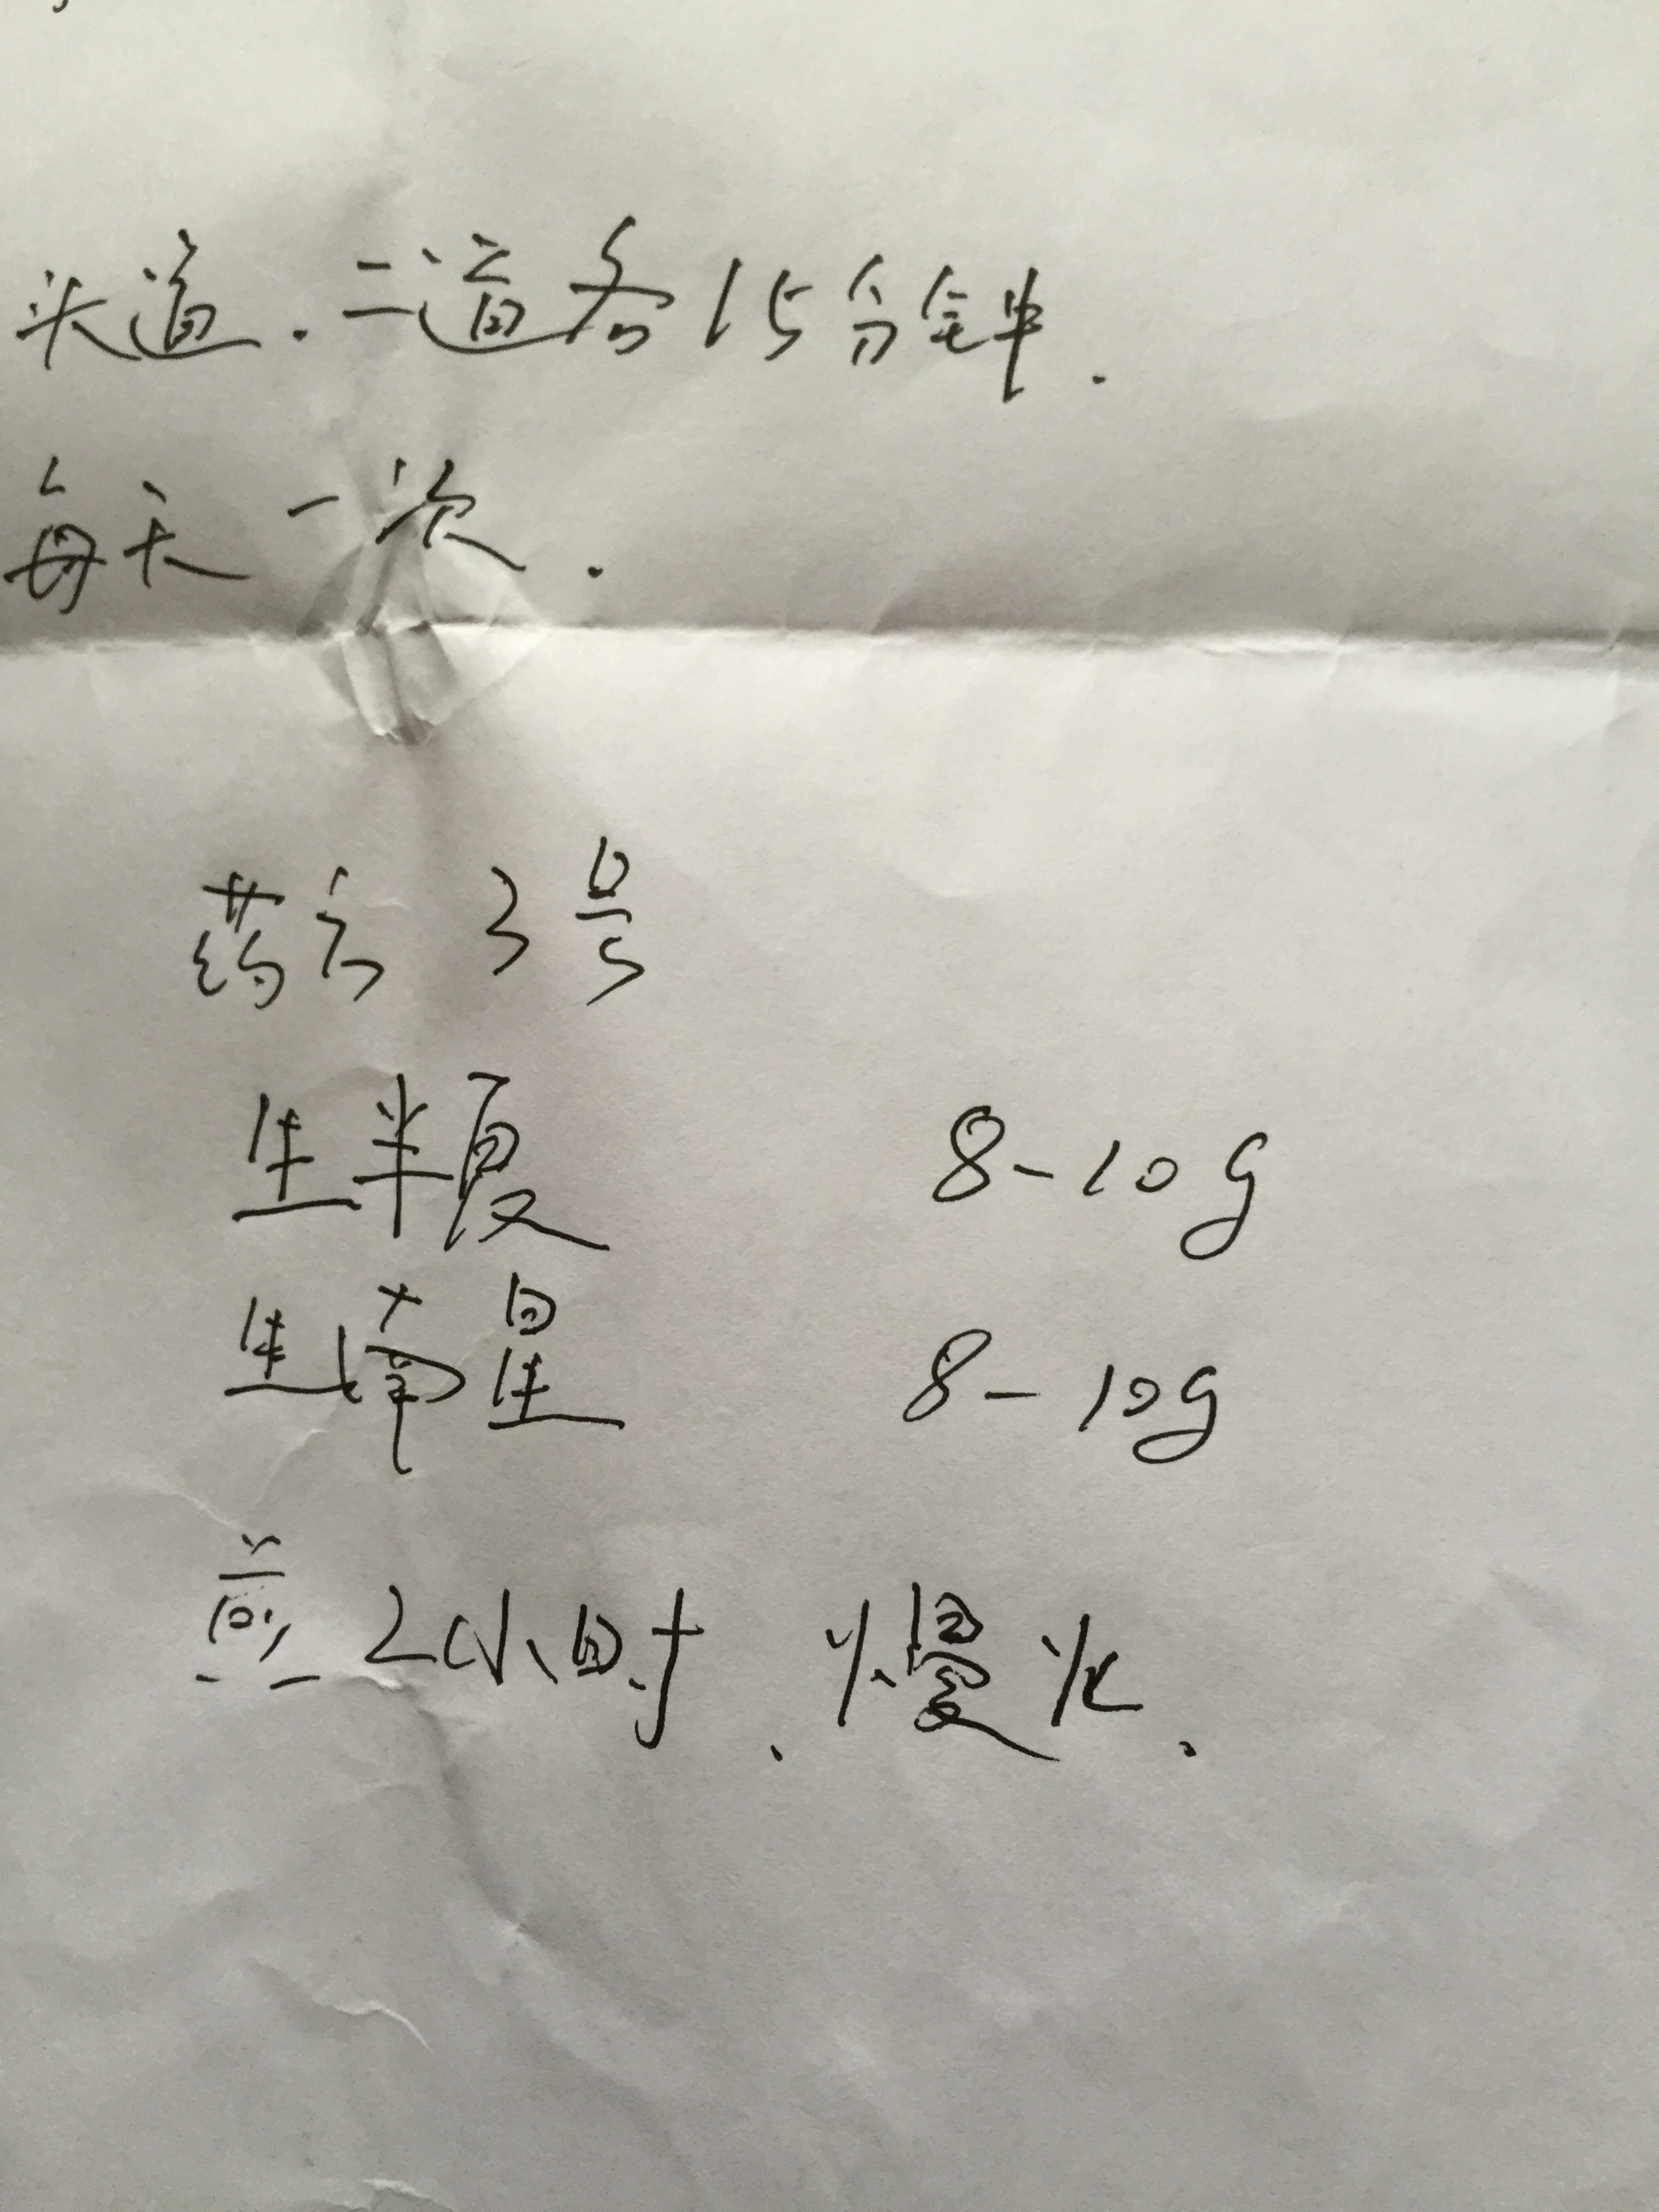 头道.二道各15分钟.
每天一次.
药方3号
生半夏 8-10g
生南星 8-10g
煎2小时、慢火、